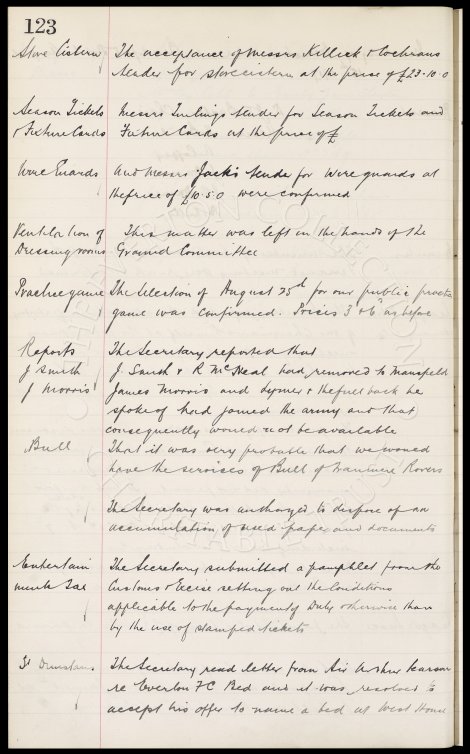 123
Stove Cistern The acceptance of Messrs Killick & Cochrans
tender for stove cistern at the price of £23-10-0
Season Tickets Messrs Tinlings tender for Season Tickets and
& Fixture Cards Fixture Cards at the price of £
Wire Guards And Messrs Jack's tender for wire guards at
the price of £10.5.0 were confirmed
Ventilation of This matter was left in the hands of the
Dressing rooms Ground Committee
Practice game The selection of August 25th for our public practice
game was confirmed. Prices 3d & 6d as before
Reports The Secretary reported that
J Smith J. Smith & R McNeal had removed to Mansfield
J Morris James Morris and Lymer & the full back he
spoke of had joined the army and that
consequently would not be available
Bull That it was very probable that we would
have the services of Bull of Tranmere Rovers
The Secretary was authorized to dispose of an
accumulation of used paper and documents
Entertain The Secretary submitted a pamphlet from the
ment Tax Customs & Excise setting out the Conditions
applicable to the payment of Duty otherwise than
by the use of stamped tickets
St Dunstans The Secretary read letter from Sir Arthur Pearson
re Everton FC Bed and it was resolved to
accept his offer to name a bed at West House